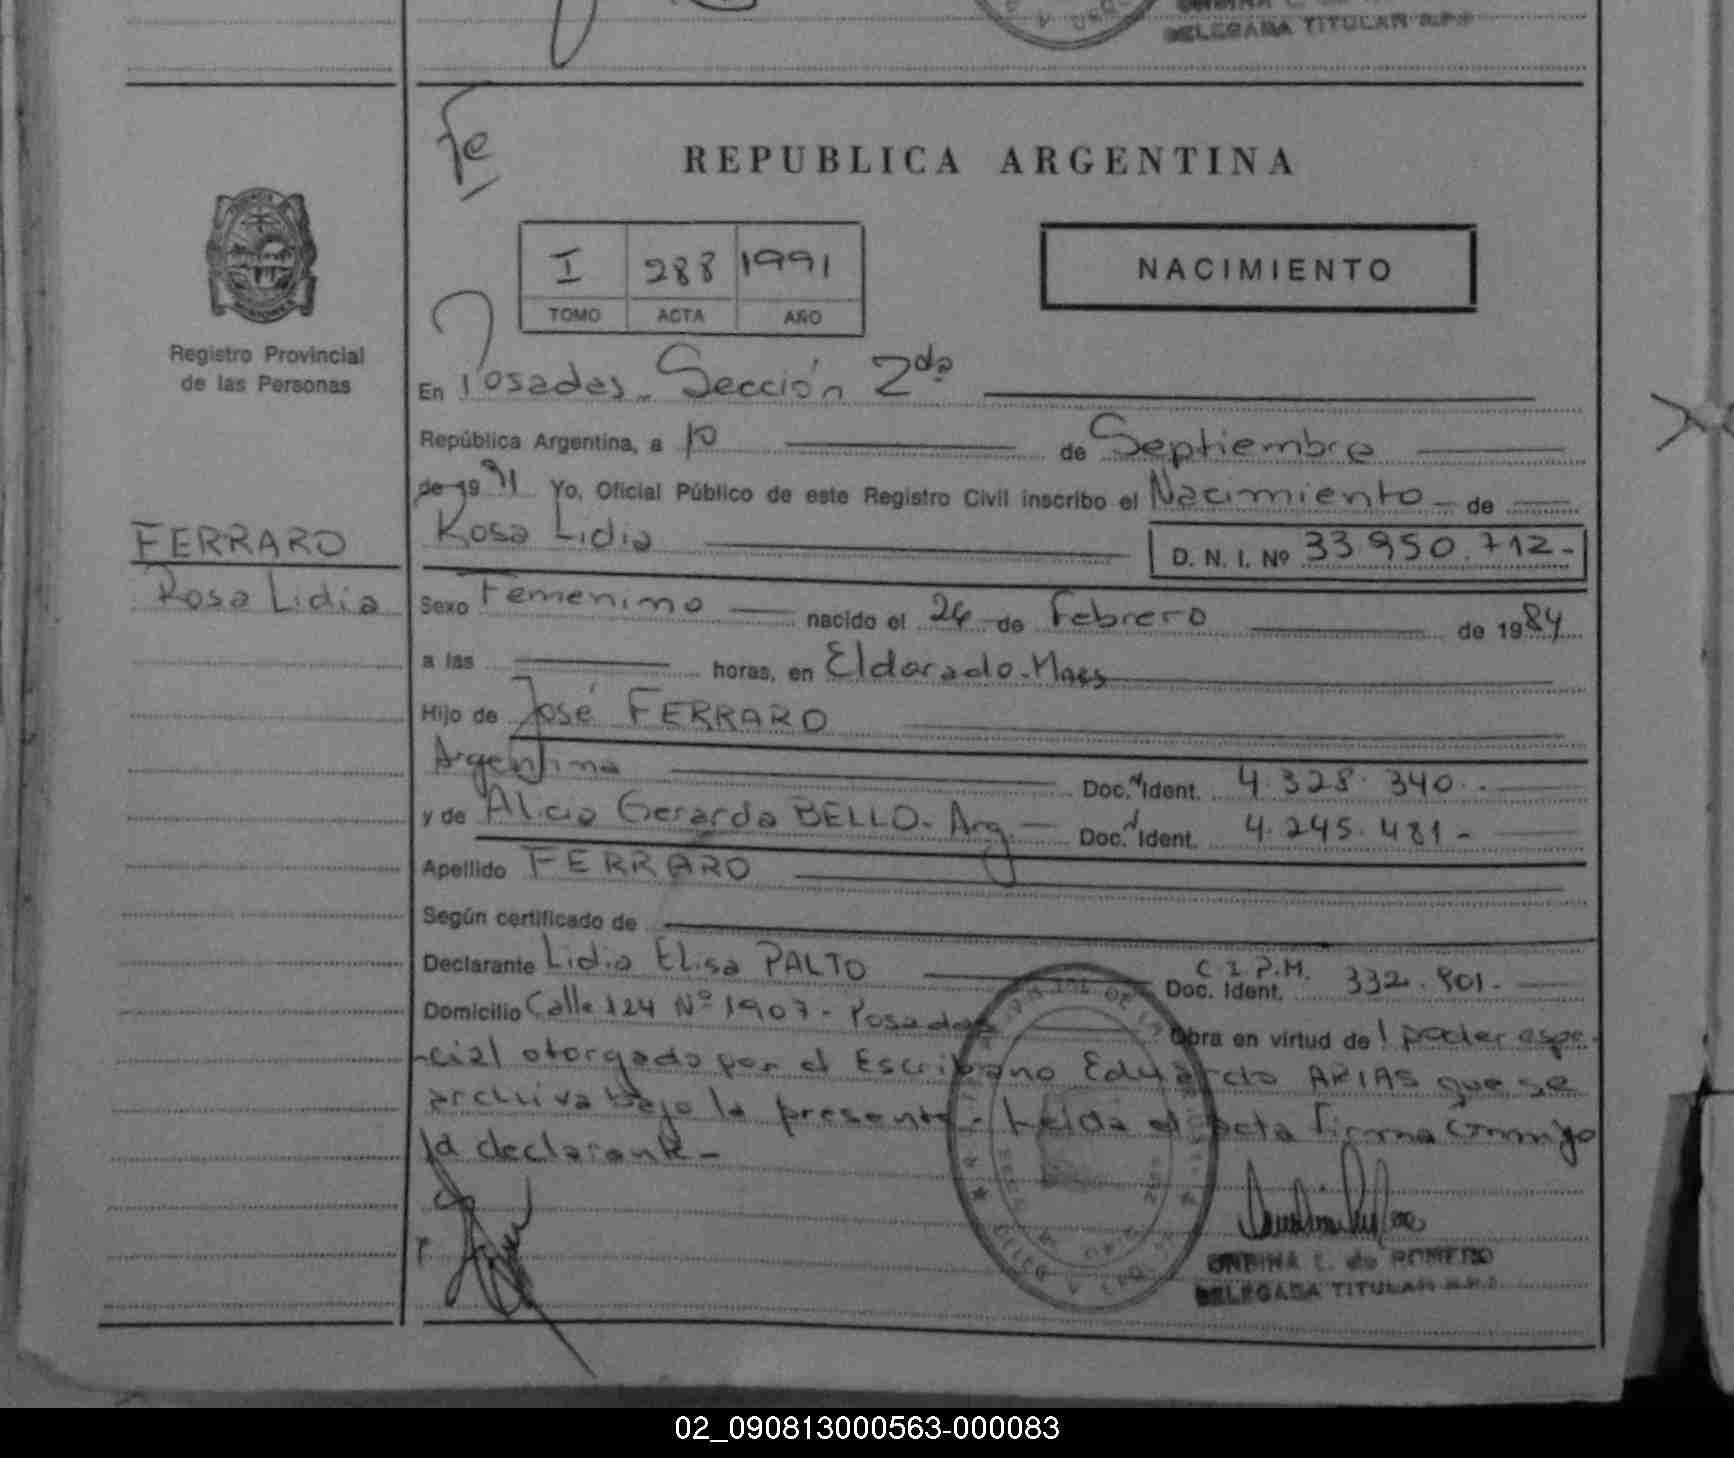 DELEGADA TITULAR R.P.P
Fe
REPUBLICA ARGENTINA
I 288 1991
TOMO ACTA AÑO
NACIMIENTO
Registro Provincial
de las Personas
En Posadas - Sección 2da
República Argentina, a 10 de Septiembre
de 19 91 Yo, Oficial Público de este Registro Civil inscribo el Nacimiento de
FERRARO
Rosa Lidia
Rosa Lidia D. N. I. Nº 33 950.712-
Sexo Femenino nacido el 24 de Febrero de 1984
a las horas, en Eldorado-Mnes
Hijo de José FERRARO
Argentina Doc. Ident. 4.328.340.-
y de Alicia Gerarda BELLO- Arg. Doc. Ident. 4.245.481-
Apellido FERRARO
Según certificado de
Declarante Lidia Elisa PALTO C.I.P.M. Doc. Ident. 332.801.-
Domicilio Calle 124 Nº 1907- Posadas Obra en virtud de 1 poder espe-
-cial otorgado por el Escribano Eduardo ARIAS que se
archiva bajo la presente- Leída el acta firma conmigo
la declarante-
ONDINA C. de ROMERO
DELEGADA TITULAR R.P.P
02_090813000563-000083